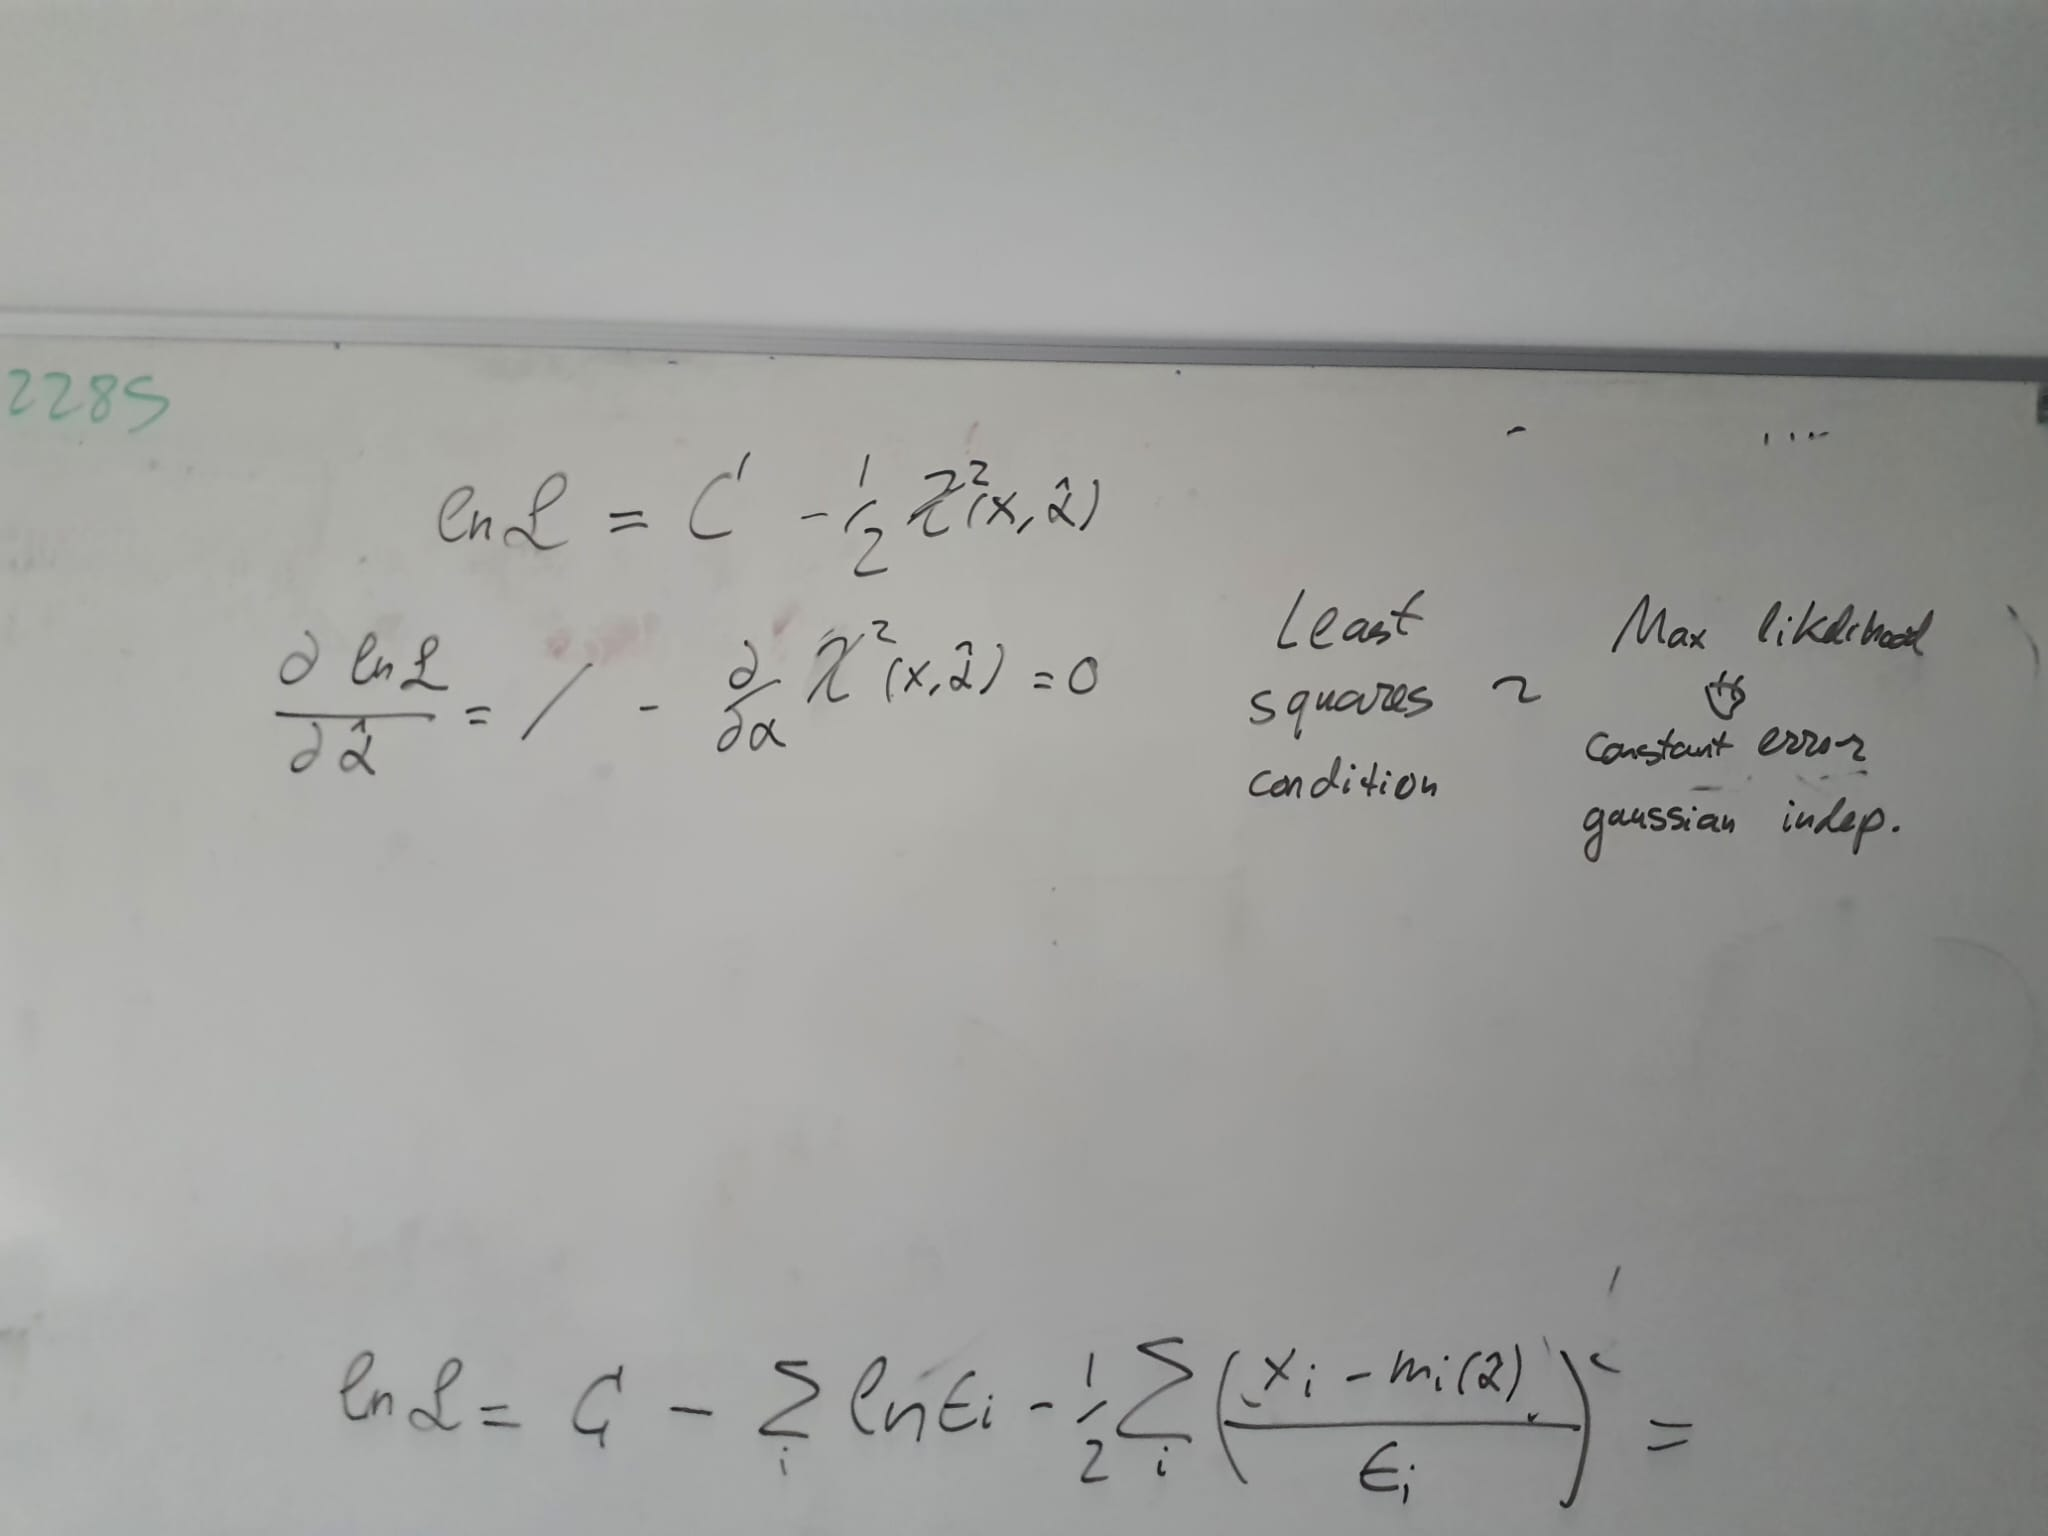 2285
ln ℒ = C' - 1/2 χ²(x, α̂)
∂ ln ℒ / ∂ α̂ = / - ∂/∂α χ²(x, α̂) = 0
Least
squares ~
condition
Max likelihood
constant error
gaussian indep.
ln ℒ = C - Σ_i ln ϵ_i - 1/2 Σ_i ( (x_i - m_i(α̂)) / ϵ_i )² =